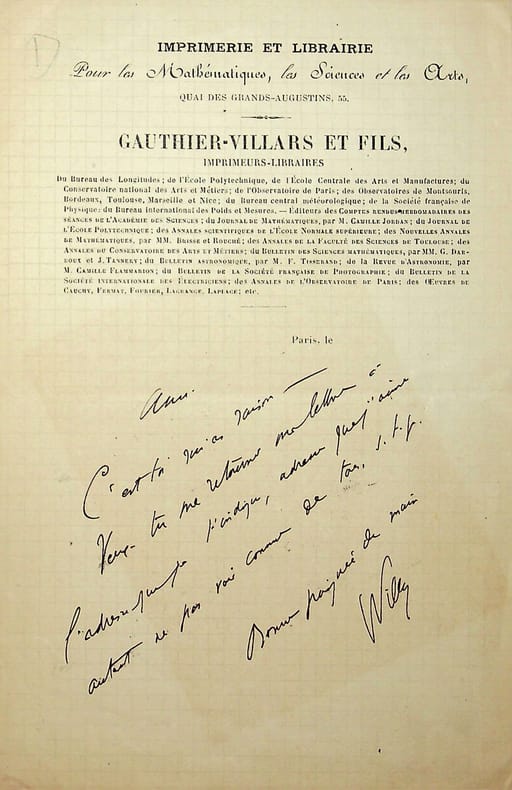 D
IMPRIMERIE ET LIBRAIRIE
Pour les Mathématiques, les Sciences et les Arts,
QUAI DES GRANDS-AUGUSTINS, 55.
GAUTHIER-VILLARS ET FILS,
IMPRIMEURS-LIBRAIRES
Du Bureau des Longitudes; de l'École Polytechnique, de l'École Centrale des Arts et Manufactures; du
Conservatoire national des Arts et Métiers; de l'Observatoire de Paris; des Observatoires de Montsouris,
Bordeaux, Toulouse, Marseille et Nice; du Bureau central météorologique; de la Société française de
Physique; du Bureau international des Poids et Mesures. — Éditeurs des COMPTES RENDUS HEBDOMADAIRES DES
SÉANCES DE L'ACADÉMIE DES SCIENCES; du JOURNAL DE MATHÉMATIQUES, par M. CAMILLE JORDAN; du JOURNAL DE
L'ÉCOLE POLYTECHNIQUE; des ANNALES SCIENTIFIQUES DE L'ÉCOLE NORMALE SUPÉRIEURE; des NOUVELLES ANNALES
DE MATHÉMATIQUES, par MM. BRISSE et ROUCHÉ; des ANNALES DE LA FACULTÉ DES SCIENCES DE TOULOUSE; des
ANNALES DU CONSERVATOIRE DES ARTS ET MÉTIERS; du BULLETIN DES SCIENCES MATHÉMATIQUES, par MM. G. DAR-
BOUX et J. TANNERY; du BULLETIN ASTRONOMIQUE, par M. F. TISSERAND; de la REVUE D'ASTRONOMIE, par
M. CAMILLE FLAMMARION; du BULLETIN DE LA SOCIÉTÉ FRANÇAISE DE PHOTOGRAPHIE; du BULLETIN DE LA
SOCIÉTÉ INTERNATIONALE DES ÉLECTRICIENS; des ANNALES DE L'OBSERVATOIRE DE PARIS; des ŒUVRES DE
CAUCHY, FERMAT, FOURIER, LAGRANGE, LAPLACE; etc.
Paris, le
Ami.
C'est toi qui as raison —
Veux-tu me retourner ma lettre à
l'adresse que je t'indique, adresse que j'aime
autant ne pas voir connue de tous, s.t.p.
Bonne poignée de main
Willy